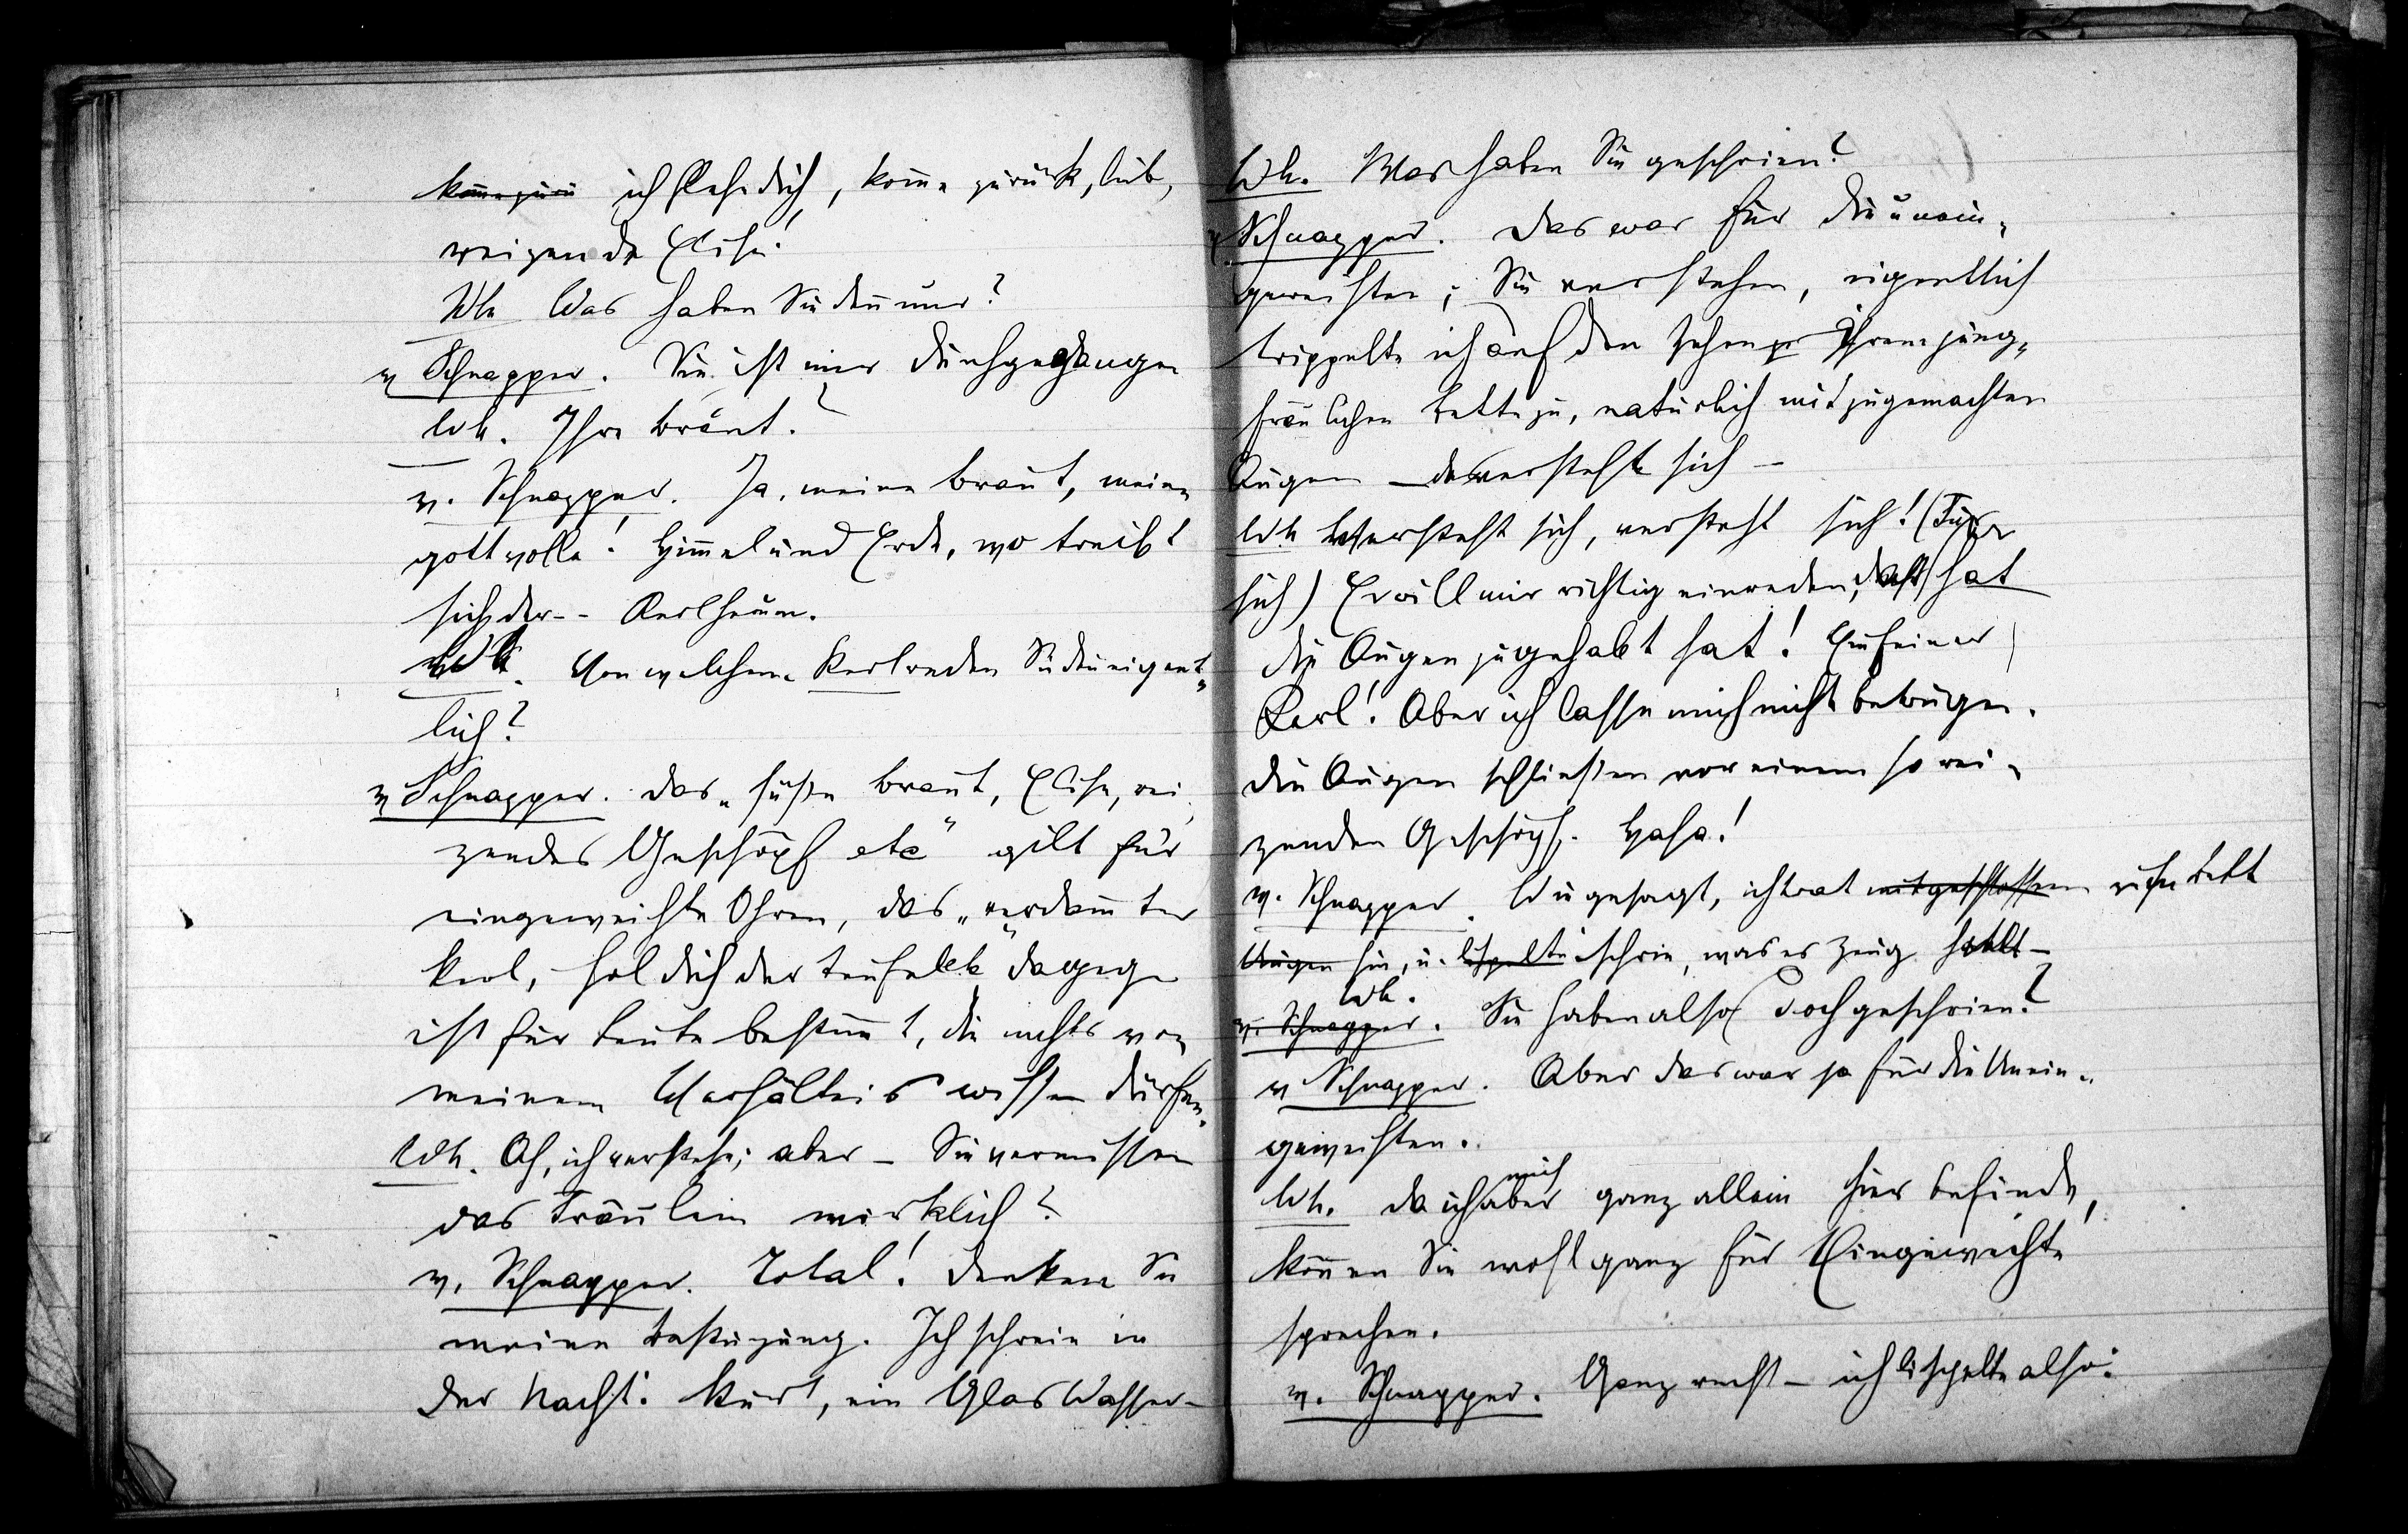 komme zurü ich flehe dich, komme zurück, lieb,
reizende Elise!
Wh Was haben Sie denn nur?
v Schnapper. Sie ist mir durchgegangen
Wh. Ihre Braut?
v. Schnapper. Ja, meine Braut, meine
gottvolle! Himmel und Erde, wo treibt
sich der -- Kerl herum.
Wh. Von welchem Kerl reden Sie denn eigent„
lich?
v Schnapper. Das „süße Braut, Elise, rei„
zendes Geschöpf etc“ gilt für
eingeweihte Ohren, das „verdammter
Kerl, hol dich der Teufel etc“ dagegen
ist für Leute bestimmt, die nichts von
meinem Verhältnis wissen dürfen.
Wh. Ah, ich verstehe; aber – Sie vermissen
das Fräulein wirklich?
v. Schnapper. Total! Denken Sie
meine Bestürzung. Ich schreie in
der Nacht: Kurt, ein Glas Wasser –
Wh. Was haben Sie geschrien?
v Schnapper. Das war für die unein„
geweihten; Sie verstehen, eigentlich
trippelte ich auf den Zehen ihrem jung„
fräulichen Bette zu, natürlich mit zugemachten
Augen – das versteht sich –
Wh Versteht sich, versteht sich! (Für
sich) Er will mir richtig einreden, daß er
die Augen zugehabt hat! Ein feiner
Kerl! Aber ich lasse mich nicht betrügen.
Die Augen schließen vor einem so rei„
zenden Geschöpf. Haha!
v. Schnapper. Wie gesagt, ich trat mit geschlossenen Bett
Augen hin, u. lispelte schrie, was es Zeug hält –
Wh.
v. Schnapper. Sie haben also doch geschrien?
v Schnapper. Aber das war ja für die Unein„
geweihten.
mich
Wh. Da ich aber ganz allein hier befinde,
können Sie wohl ganz für Eingeweihte
sprechen.
v. Schnapper. Ganz recht – ich lispelte also: